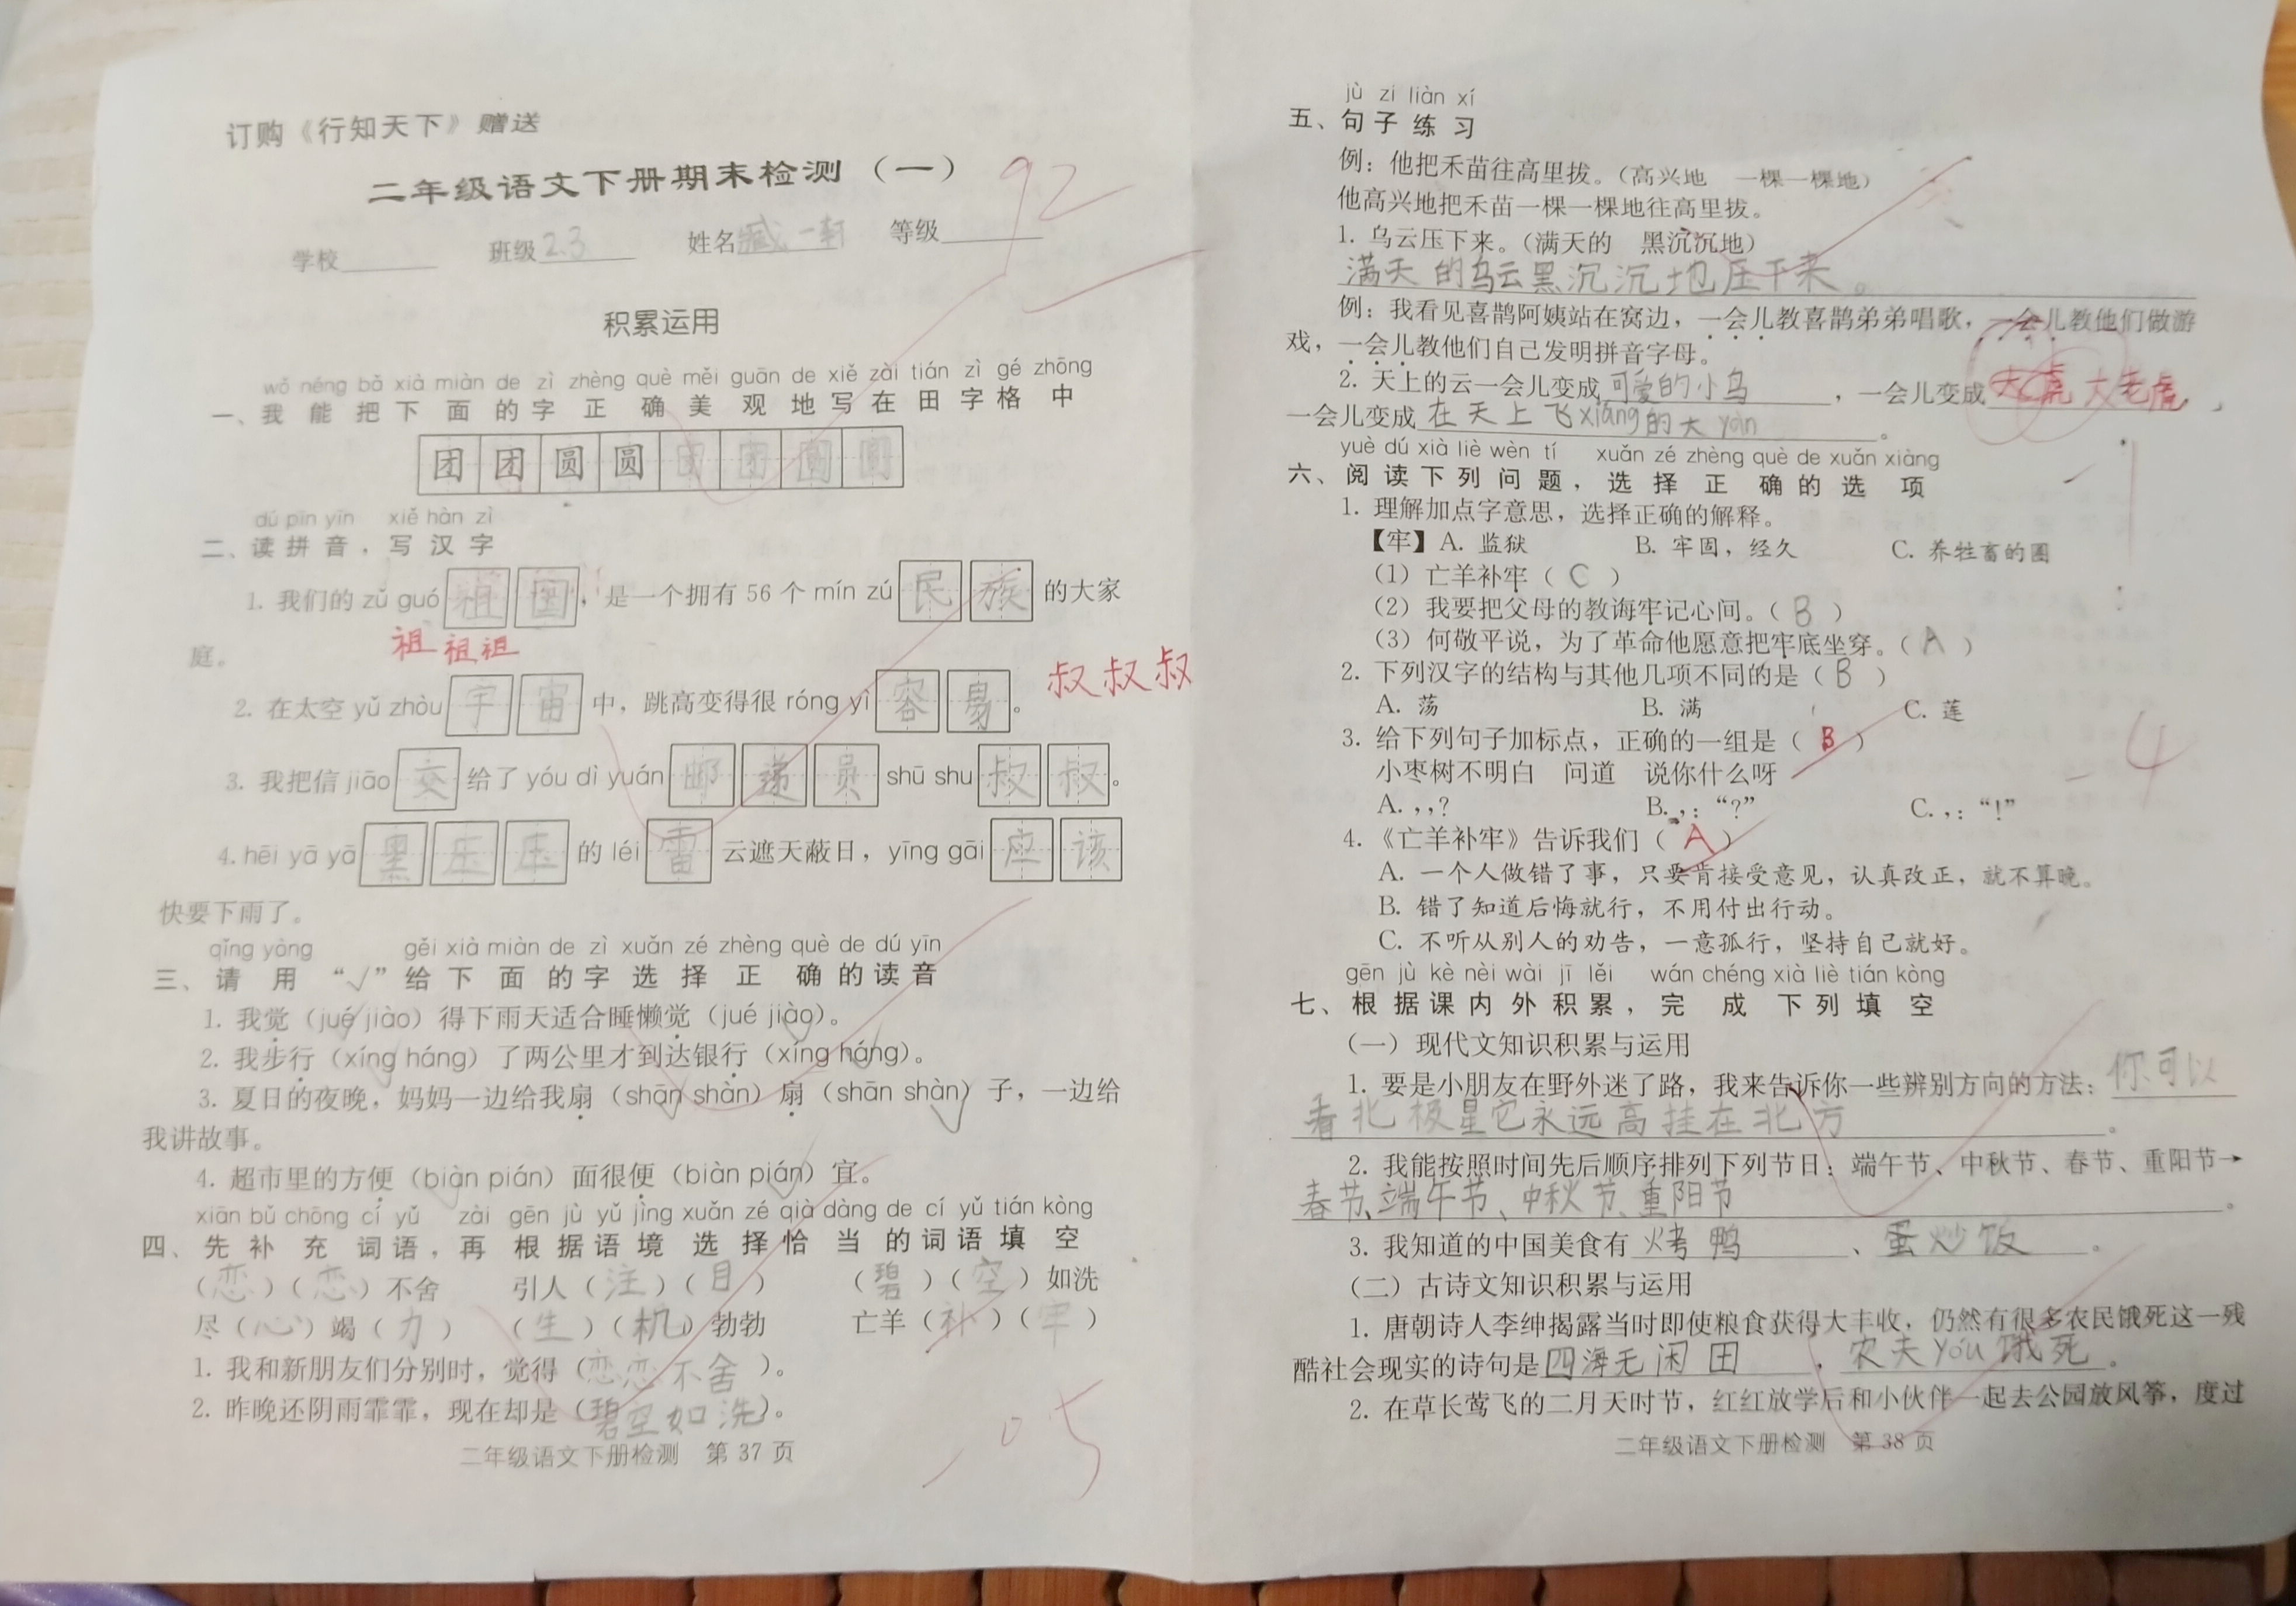 订购《行知天下》赠送
二年级语文下册期末检测（一）
92
学校 班级2.3 姓名臧一轩 等级
积累运用
wǒ néng bǎ xià miàn de zì zhèng què měi guān de xiě zài tián zì gé zhōng
一、我能把下面的字正确美观地写在田字格中
团 团 圆 圆 团 团 圆 圆
dú pīn yīn xiě hàn zì
二、读拼音，写汉字
1. 我们的 zǔ guó 祖国，是一个拥有 56 个 mín zú 民族 的大家
庭。
祖 祖 祖
2. 在太空 yǔ zhòu 宇宙 中，跳高变得很 róng yì 容易。
叔 叔 叔
3. 我把信 jiāo 交 给了 yóu dì yuán 邮递员 shū shu 叔叔。
4. hēi yā yā 黑压压 的 léi 雷 云遮天蔽日，yīng gāi 应该
快要下雨了。
qǐng yòng gěi xià miàn de zì xuǎn zé zhèng què de dú yīn
三、请用“√”给下面的字选择正确的读音
1. 我觉（jué jiào）得下雨天适合睡懒觉（jué jiào）。
2. 我步行（xíng háng）了两公里才到达银行（xíng háng）。
3. 夏日的夜晚，妈妈一边给我扇（shān shàn）扇（shān shàn）子，一边给
我讲故事。
4. 超市里的方便（biàn pián）面很便（biàn pián）宜。
xiān bǔ chōng cí yǔ zài gēn jù yǔ jìng xuǎn zé qià dàng de cí yǔ tián kòng
四、先补充词语，再根据语境选择恰当的词语填空
（恋）（恋）不舍 引人（注）（目） （碧）（空）如洗
尽（心）竭（力） （生）（机）勃勃 亡羊（补）（牢）
1. 我和新朋友们分别时，觉得（恋恋不舍）。
2. 昨晚还阴雨霏霏，现在却是（碧空如洗）。
二年级语文下册检测 第 37 页
jù zi liàn xí
五、句子练习
例：他把禾苗往高里拔。（高兴地 一棵一棵地）
他高兴地把禾苗一棵一棵地往高里拔。
1. 乌云压下来。（满天的 黑沉沉地）
满天的乌云黑沉沉地压下来。
例：我看见喜鹊阿姨站在窝边，一会儿教喜鹊弟弟唱歌，一会儿教他们做游
戏，一会儿教他们自己发明拼音字母。
2. 天上的云一会儿变成可爱的小鸟，一会儿变成大老虎，
一会儿变成在天上飞xiáng的大yàn。
yuè dú xià liè wèn tí xuǎn zé zhèng què de xuǎn xiàng
六、阅读下列问题，选择正确的选项
1. 理解加点字意思，选择正确的解释。
【牢】A. 监狱 B. 牢固，经久 C. 养牲畜的圈
（1）亡羊补牢（C）
（2）我要把父母的教诲牢记心间。（B）
（3）何敬平说，为了革命他愿意把牢底坐穿。（A）
2. 下列汉字的结构与其他几项不同的是（B）
A. 荡 B. 满 C. 莲
3. 给下列句子加标点，正确的一组是（B）
小枣树不明白 问道 说你什么呀
A. ，，？ B. ，：“？” C. ，：“！”
-4
4.《亡羊补牢》告诉我们（A）
A. 一个人做错了事，只要肯接受意见，认真改正，就不算晚。
B. 错了知道后悔就行，不用付出行动。
C. 不听从别人的劝告，一意孤行，坚持自己就好。
gēn jù kè nèi wài jī lěi wán chéng xià liè tián kòng
七、根据课内外积累，完成下列填空
（一）现代文知识积累与运用
1. 要是小朋友在野外迷了路，我来告诉你一些辨别方向的方法：你可以
看北极星它永远高挂在北方。
2. 我能按照时间先后顺序排列下列节日：端午节、中秋节、春节、重阳节→
春节、端午节、中秋节、重阳节。
3. 我知道的中国美食有烤鸭、蛋炒饭。
（二）古诗文知识积累与运用
1. 唐朝诗人李绅揭露当时即使粮食获得大丰收，仍然有很多农民饿死这一残
酷社会现实的诗句是四海无闲田，农夫yóu饿死。
2. 在草长莺飞的二月天时节，红红放学后和小伙伴一起去公园放风筝，度过
二年级语文下册检测 第 38 页